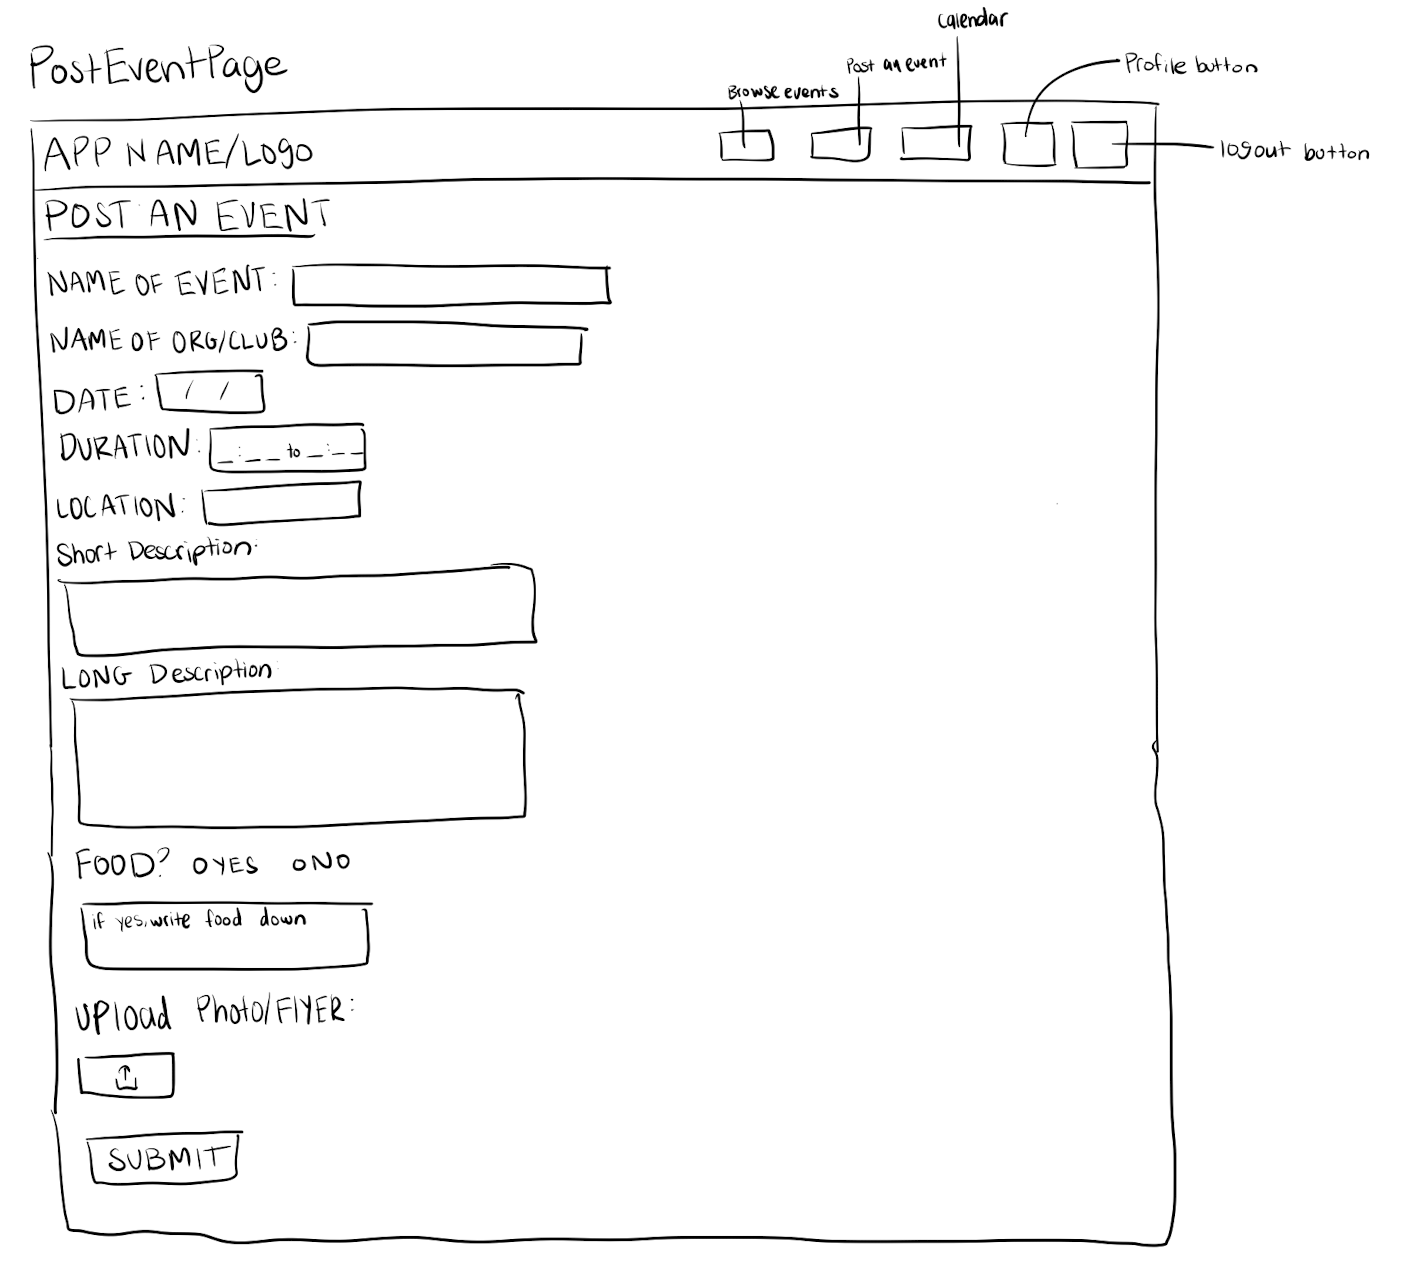 Calendar
PostEventPage
Post an event
Profile button
Browse events
APP NAME/Logo
logout button
POST AN EVENT
NAME OF EVENT:
NAME OF ORG/CLUB:
DATE: / /
DURATION: _:_ _ to _:_ _
LOCATION:
Short Description:
LONG Description
FOOD? O YES O NO
if yes, write food down
UPload Photo/FlYER:
SUBMIT